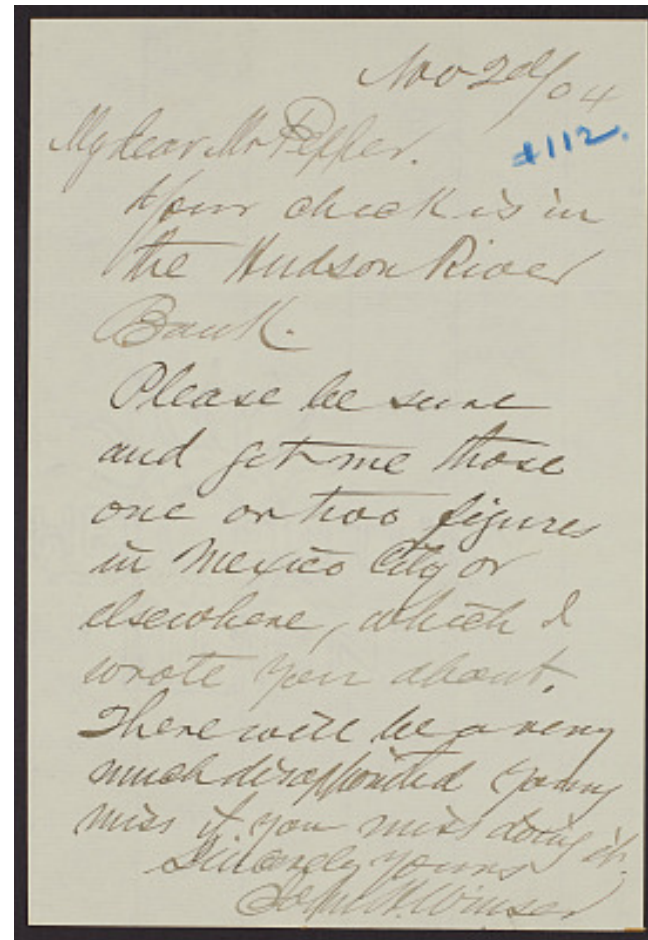 Nov 2d/04
#112.
My dear Mr Pepper.
Your check is in
the Hudson River
Bank.
Please be sure
and get me those
one or two figures
in Mexico City or
elsewhere, which I
wrote you about.
There will be a very
much disappointed young
miss if you miss doing it.
Sincerely yours
John H. Winser